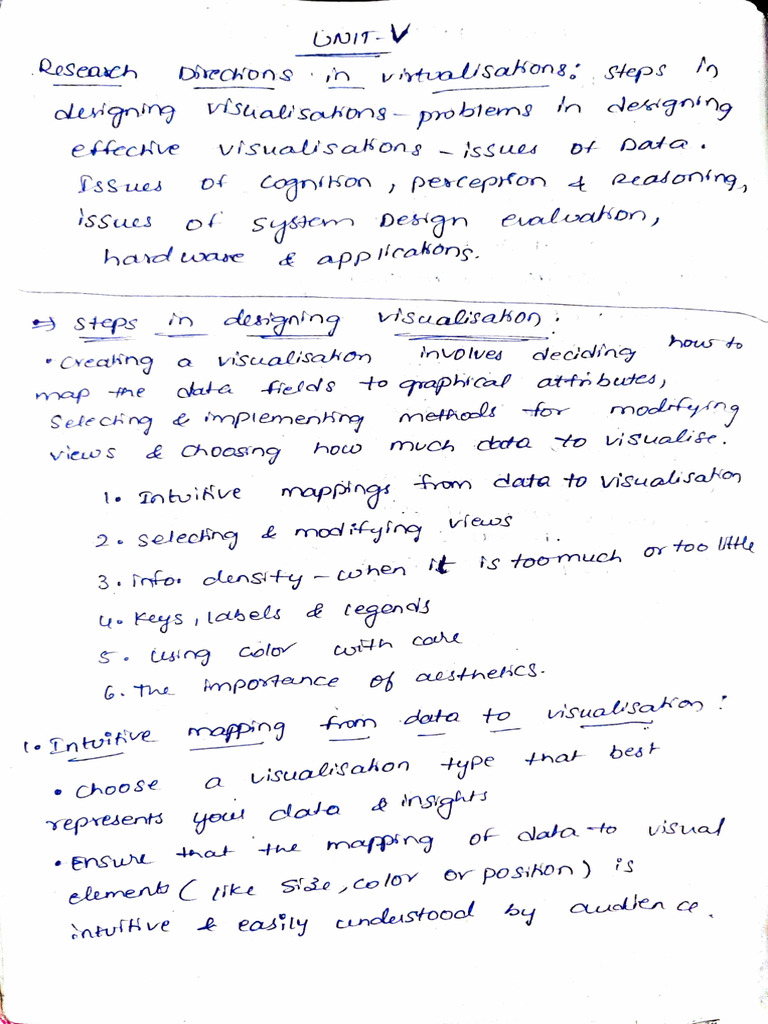 UNIT-V
Research Directions in virtualisations: steps in
designing visualisations - problems in designing
effective visualisations - issues of Data.
Issues of cognition, perception & Reasoning,
issues of system Design evaluation,
hardware & applications.
=> steps in designing visualisation:
• Creating a visualisation involves deciding how to
map the data fields to graphical attributes,
selecting & implementing methods for modifying
views & choosing how much data to visualise.
1. Intuitive mappings from data to visualisation
2. selecting & modifying views
3. info. density - when it is too much or too little
4. keys, labels & legends
5. using color with care
6. The importance of aesthetics.
1. Intuitive mapping from data to visualisation:
• choose a visualisation type that best
represents your data & insights
• Ensure that the mapping of data to visual
elements (like size, color or position) is
intuitive & easily understood by audience.